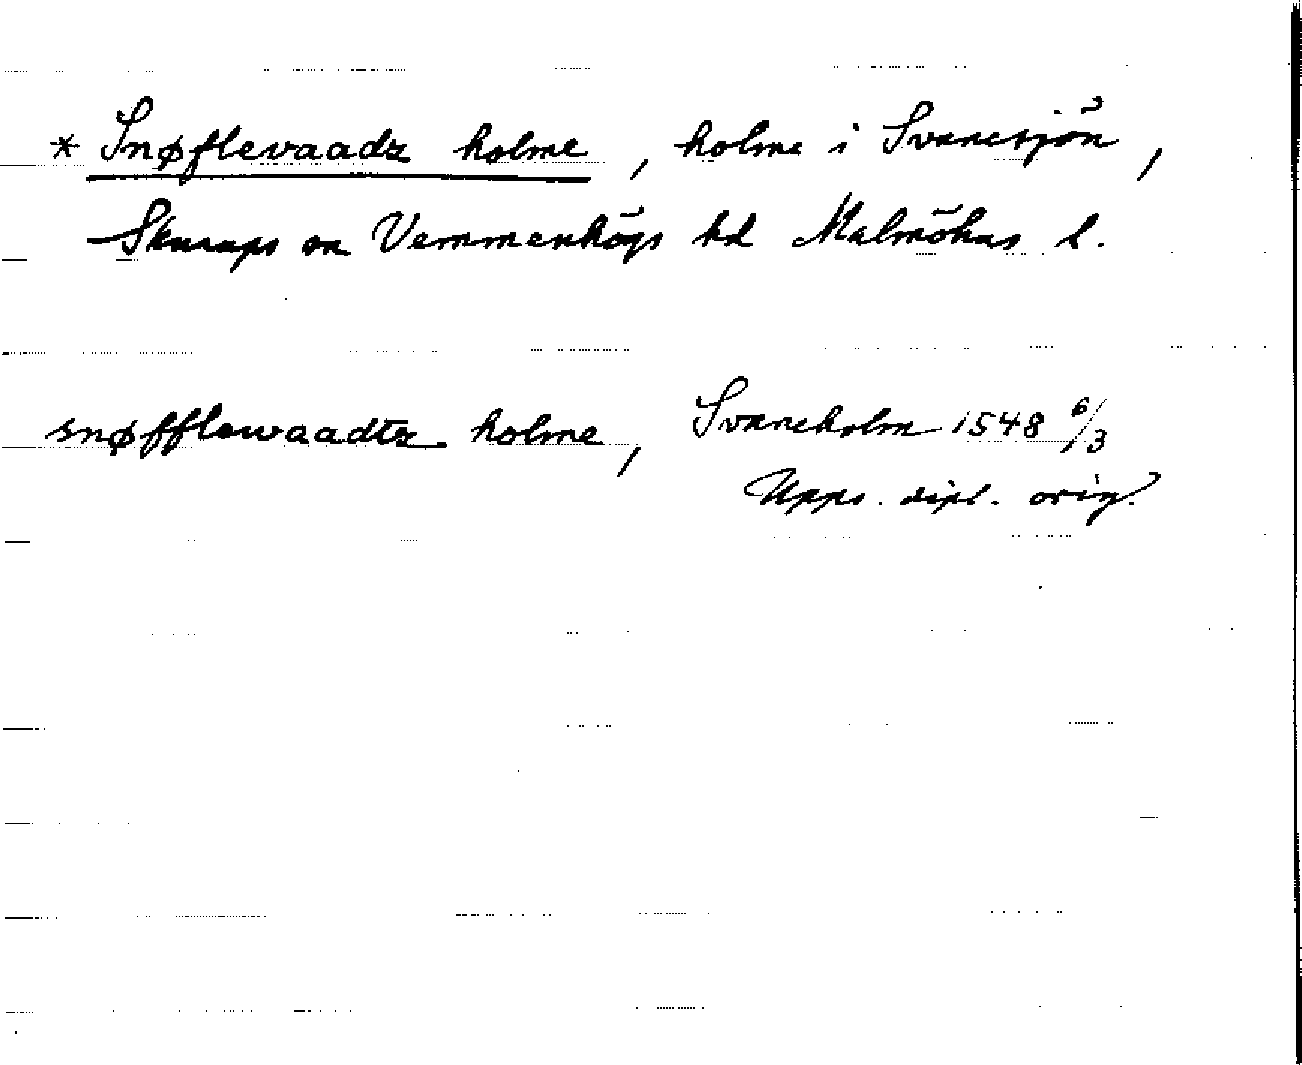 * Snøflevaadz holme, holme i Svanesjön,
Skurups sn Vemmenhögs hd Malmöhus l.
snøfflewaadtz holme, Svaneholm 1548 6/3
Upps. dipl. orig.